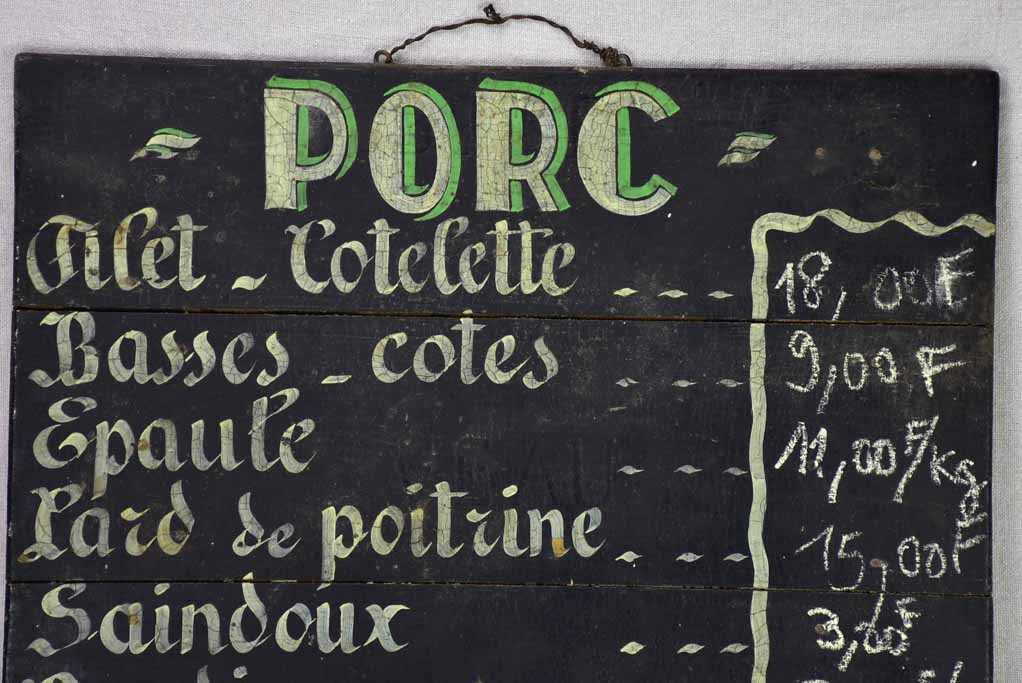 PORC
Filet - Cotelette - - - 18,00F
Basses - cotes - - - 9,00 F
Epaule - - - 11,00 F/Kg
Lard de poitrine - - - 15,00F
Saindoux - - - 3,00F